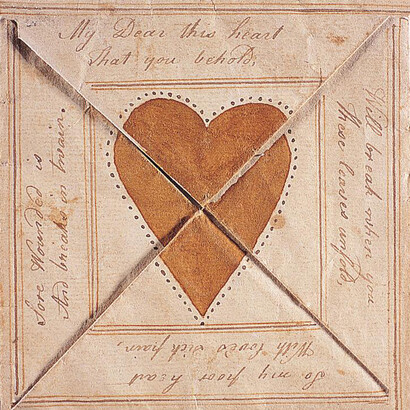 My Dear this heart
That you behold,
Will break when you
These leaves unfold,
So my poor heart
With love's sick pain,
Sore Wounded is
And breaks in twain.